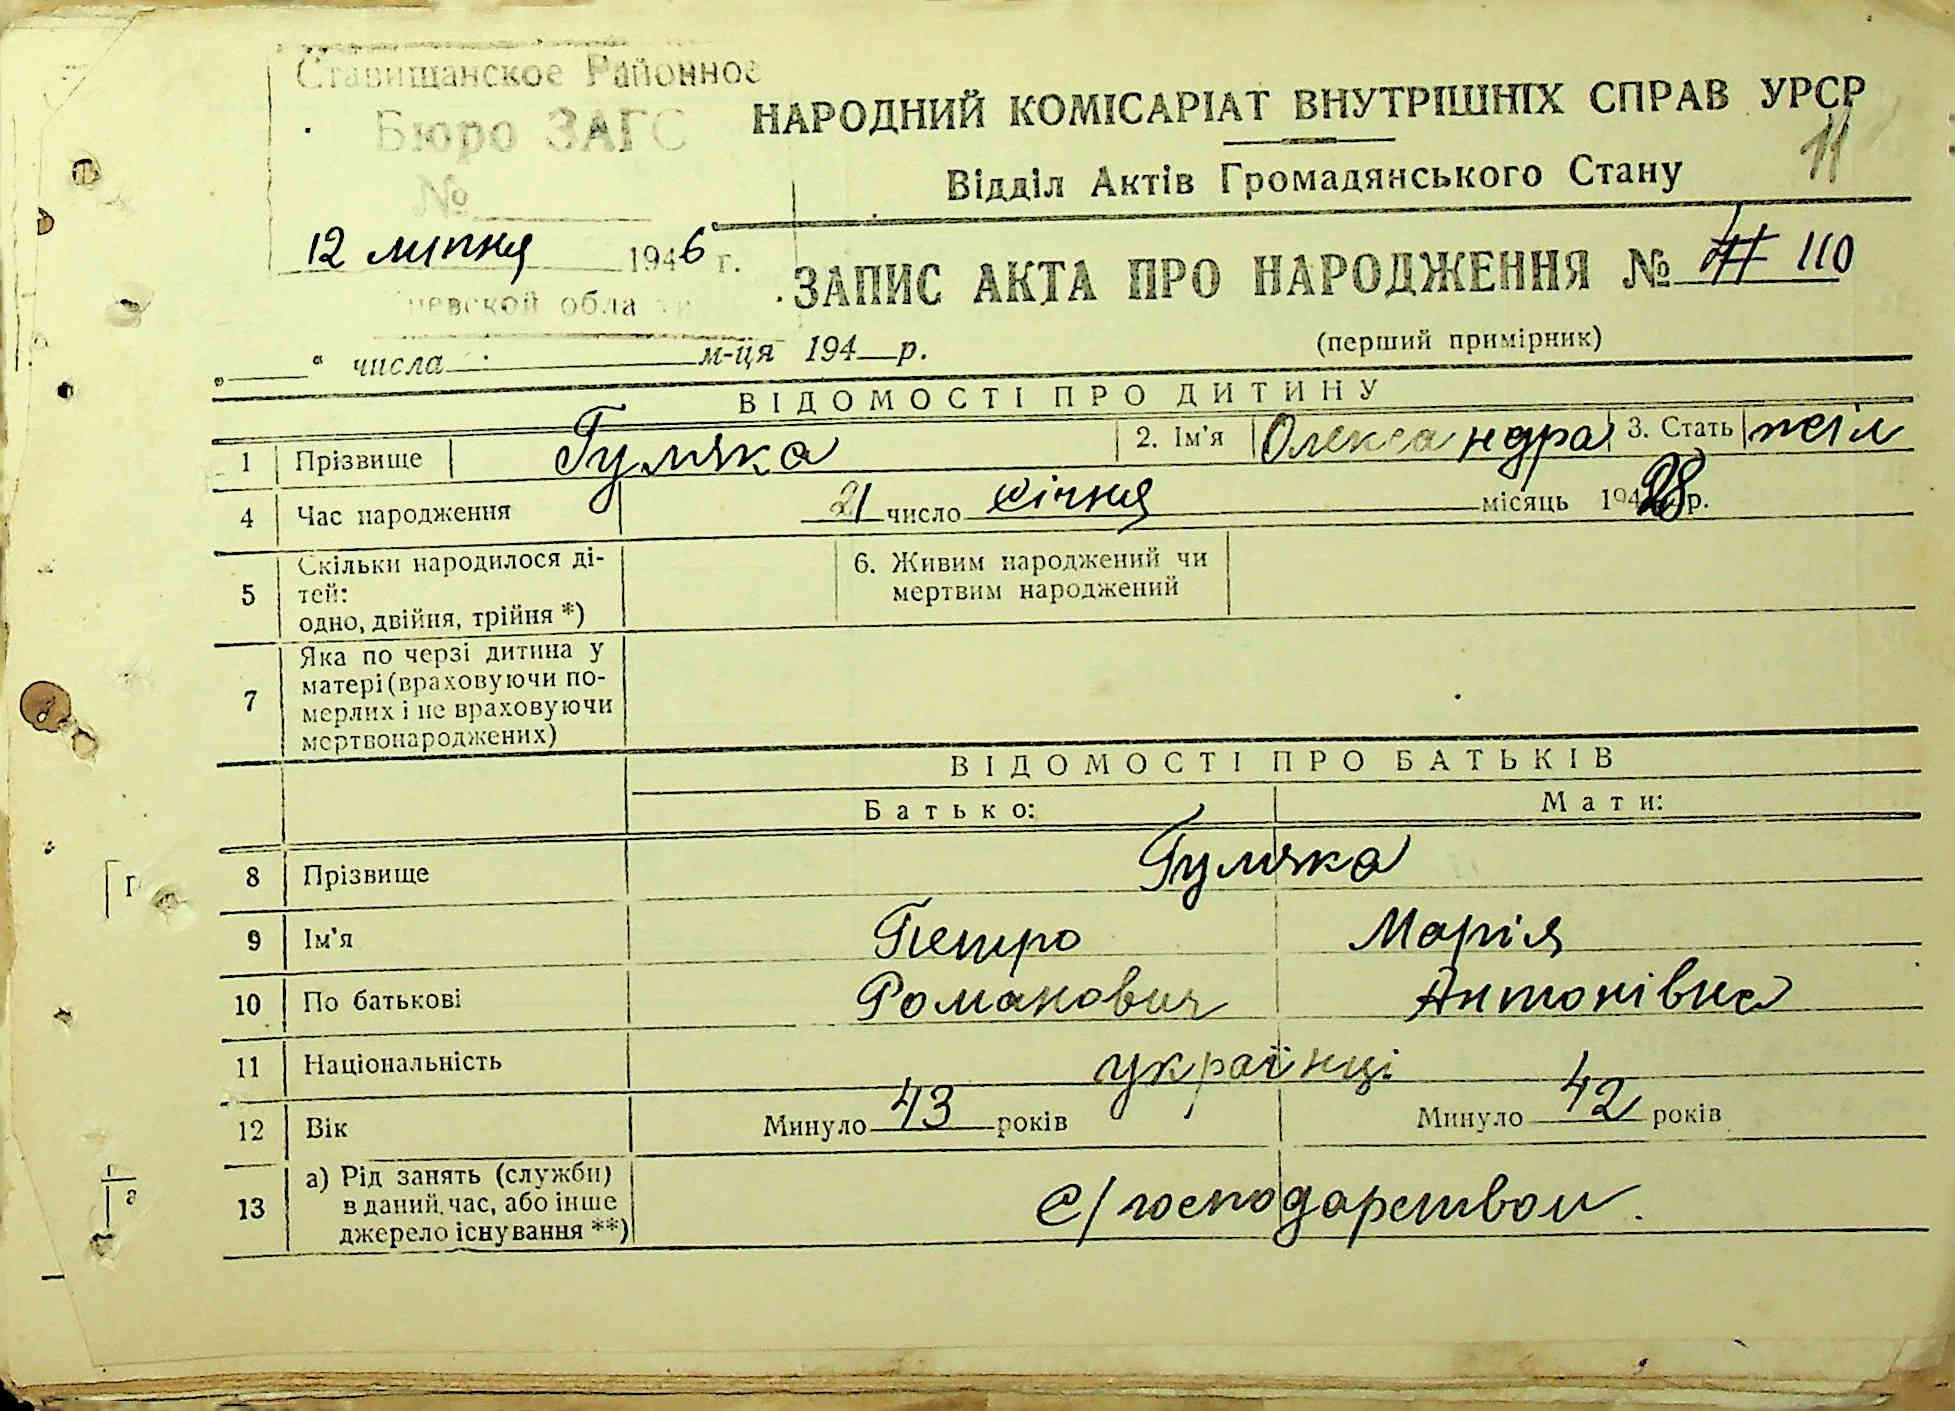 Ставищанское Районное
Бюро ЗАГС
№
НАРОДНИЙ КОМІСАРІАТ ВНУТРІШНІХ СПРАВ УРСР
11
Відділ Актів Громадянського Стану
12 липня 1946 г.
ЗАПИС АКТА ПРО НАРОДЖЕННЯ № 110
(перший примірник)
„ “ числа м-ця 194 р.
ВІДОМОСТІ ПРО ДИТИНУ
1 Прізвище Гуляка 2. Ім'я Олександра 3. Стать жіл
4 Час народження 21 число січня місяць 1928 р.
5 Скільки народилося ді-
тей:
одно, двійня, трійня *)
6. Живим народжений чи
мертвим народжений
7 Яка по черзі дитина у
матері (враховуючи по-
мерлих і не враховуючи
мертвонароджених)
ВІДОМОСТІ ПРО БАТЬКІВ
Батько: Мати:
8 Прізвище Гуляка
9 Ім'я Петро Марія
10 По батькові Романович Антонівна
11 Національність українці
12 Вік Минуло 43 років Минуло 42 років
13 а) Рід занять (служби)
в даний час, або інше
джерело існування **)
С/господарством.